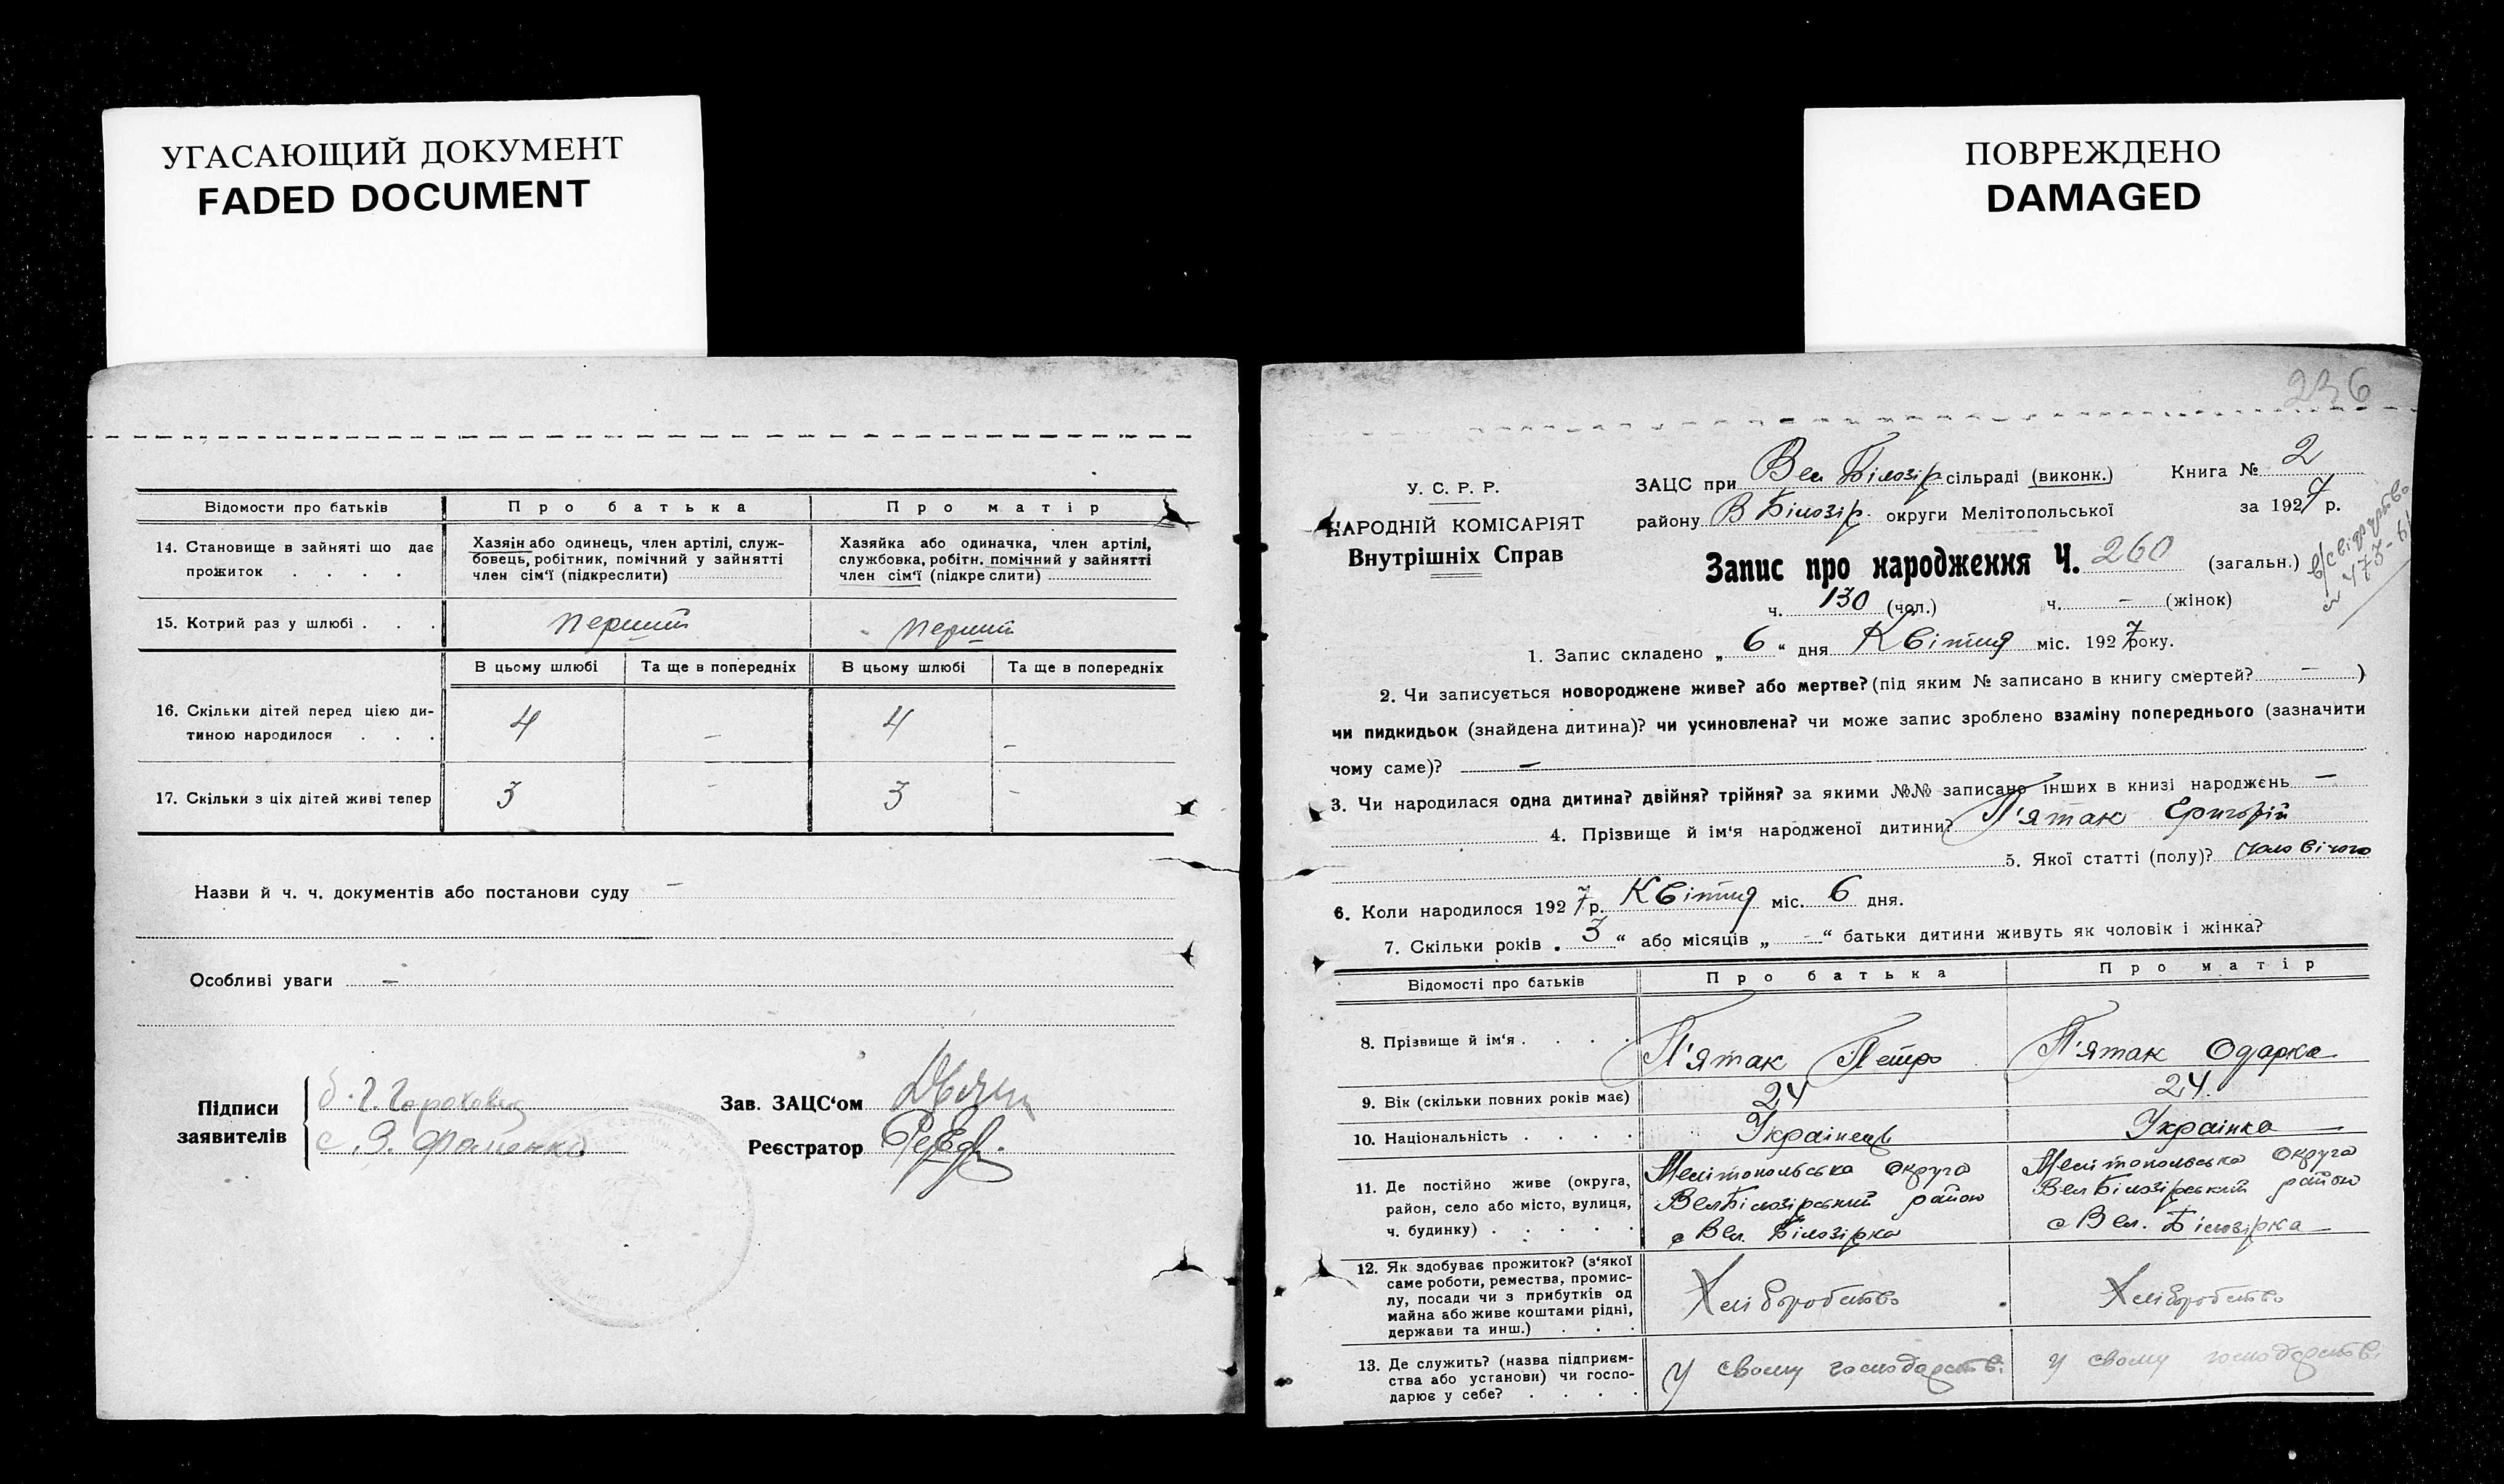 УГАСАЮЩИЙ ДОКУМЕНТ
FADED DOCUMENT
ПОВРЕЖДЕНО
DAMAGED
Відомости про батьків
Про батька
Про матір
14. Становище в зайняті що дає
прожиток . . . .
Хазяін або одинець, член артілі, служ-
бовець, робітник, помічний у зайнятті
член сім'ї (підкреслити)
Хазяйка або одиначка, член артілі,
службовка, робітн. помічний у зайнятті
член сім'ї (підкреслити)
15. Котрий раз у шлюбі . . . перший перший
В цьому шлюбі Та ще в попередніх В цьому шлюбі Та ще в попередніх
16. Скільки дітей перед цією ди-
тиною народилося . . . 4 – 4 –
17. Скільки з ціх дітей живі тепер 3 – 3 –
Назви й ч. ч. документів або постанови суду –
Особливі уваги –
Підписи
заявителів
Фоменко
Зав. ЗАЦС'ом
Реєстратор
236
У. С. Р. Р.
НАРОДНІЙ КОМІСАРІЯТ
Внутрішніх Справ
ЗАЦС при Вел Білозір. сільраді (виконк.) Книга № 2
району В Білозір. округи Мелітопольської за 1927 р.
Запис про народження Ч. 260 (загальн.)
ч. 130 (чол.) ч. – (жінок)
1. Запис складено „ 6 “ дня Квітня міс. 1927 року.
2. Чи записується новороджене живе? або мертве? (під яким № записано в книгу смертей? – )
чи пидкидьок (знайдена дитина)? чи усиновлена? чи може запис зроблено взаміну попереднього (зазначити
чому саме)? –
3. Чи народилася одна дитина? двійня? трійня? за якими №№ записано інших в книзі народжень –
4. Прізвище й ім'я народженої дитини? П'ятак Григорій
5. Якої статті (полу)? чоловічого
6. Коли народилося 1927 р. Квітня міс. 6 дня.
7. Скільки років „ 3 “ або місяців „ – “ батьки дитини живуть як чоловік і жінка?
Відомості про батьків
Про батька
Про матір
8. Прізвище й ім'я . . . . П'ятак Петро П'ятак Одарка
9. Вік (скільки повних років має) 24 24.
10. Національність . . . . Українець Українка
11. Де постійно живе (округа,
район, село або місто, вулиця,
ч. будинку) . . . . .
Мелітопольська округа
Вел Білозірський район
с Вел. Білозірка
Мелітопольська округа
Вел Білозірський район
с Вел. Білозірка
12. Як здобуває прожиток? (з'якої
саме роботи, ремества, промис-
лу, посади чи з прибутків од
майна або живе коштами рідні,
держави та инш.) . . .
Хліборобство
Хліборобство
13. Де служить? (назва підприєм-
ства або установи) чи госпо-
дарює у себе? . . . .
У свому господарстві.
У свому господарстві.